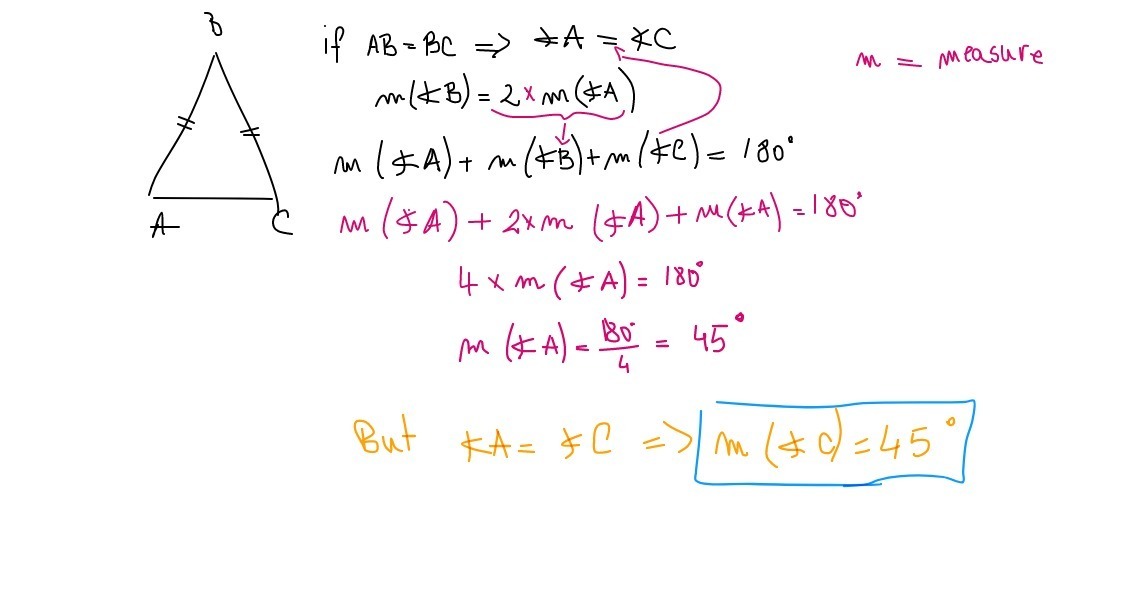 B
A
C
if AB = BC => ∡A = ∡C
m = measure
m(∡B) = 2 × m(∡A)
m(∡A) + m(∡B) + m(∡C) = 180°
m(∡A) + 2×m(∡A) + m(∡A) = 180°
4 × m(∡A) = 180°
m(∡A) = 180°/4 = 45°
But ∡A = ∡C => m(∡C) = 45°